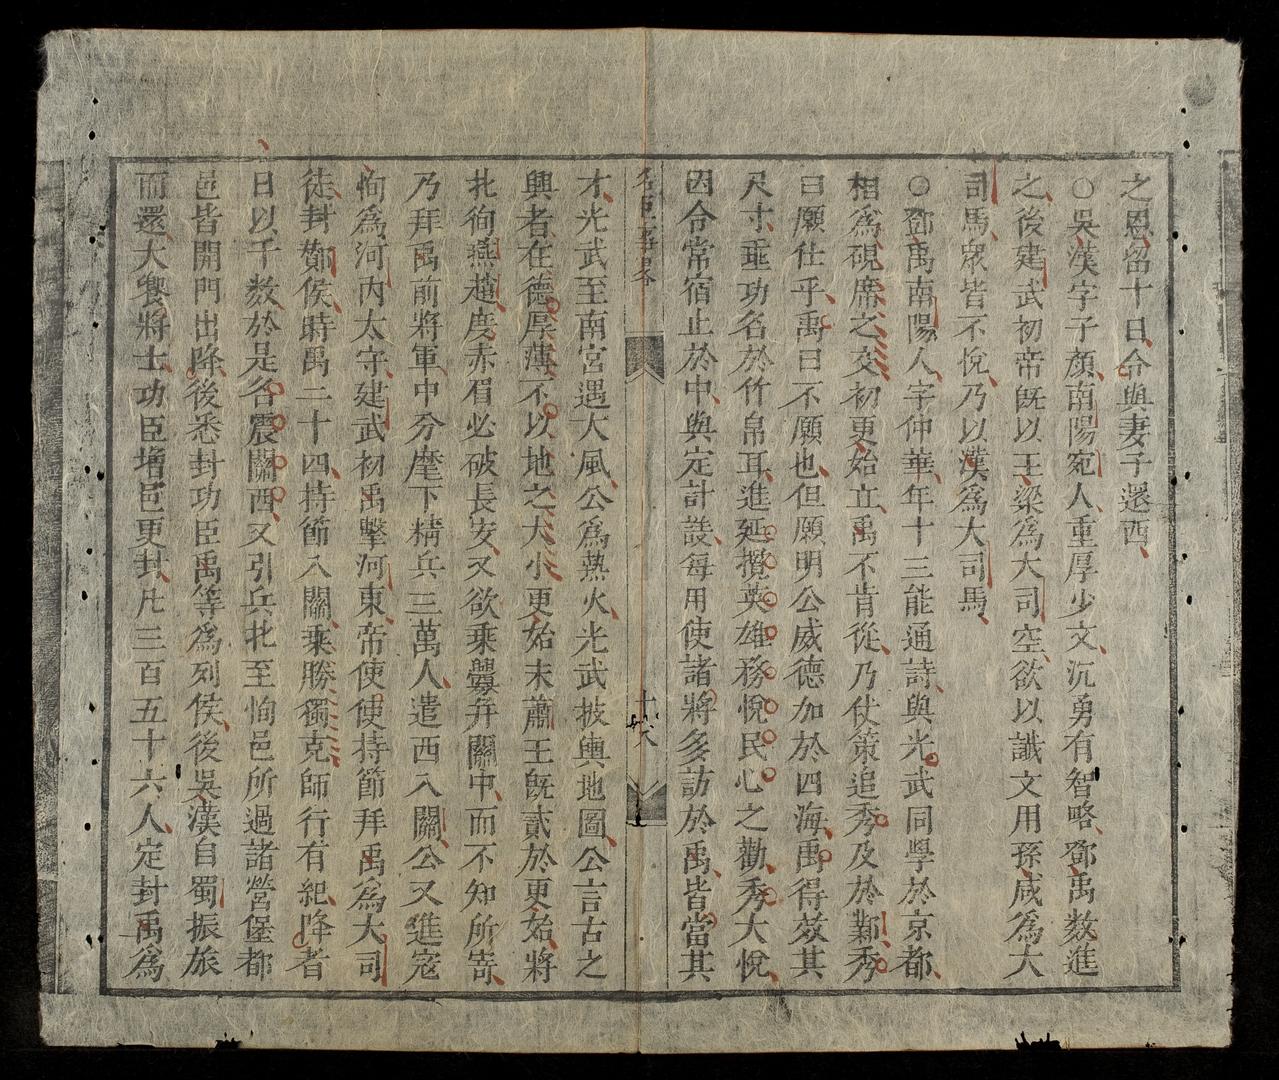 之恩留十日令與妻子還西
○吳漢字子顔南陽宛人重厚少文沉勇有智略鄧禹数進
之後建武初帝既以王梁為大司空欲以讖文用孫咸為大
司馬衆皆不悅乃以漢為大司馬
○鄧禹南陽人字仲華年十三能通詩與光武同學於京都
相為硯席之交初更始立禹不肯從乃仗策追秀及於鄴秀
曰願仕乎禹曰不願也但願明公威德加於四海禹得效其
尺寸垂功名於竹帛耳進延攬英雄務悅民心之勸秀大悅
因令常宿止於中與定計議每用使諸將多訪於禹皆當其
名臣事畧
十六
才光武至南宮遇大風公為爇火光武披輿地圖公言古之
興者在德厚薄不以地之大小更始末蕭王既貳於更始將
北徇燕趙度赤眉必破長安又欲乘釁并關中而不知所寄
乃拜禹前將軍中分麾下精兵三萬人遣西入關公又進寇
恂為河內太守建武初禹擊河東帝使使持節拜禹為大司
徒封酇侯時禹二十四持節入關乘勝獨克師行有紀降者
日以千数於是名震關西又引兵北至恂邑所過諸營堡都
邑皆開門出降後悉封功臣禹等為列侯後吳漢自蜀振旅
而還大饗將士功臣增邑更封凡三百五十六人定封禹為